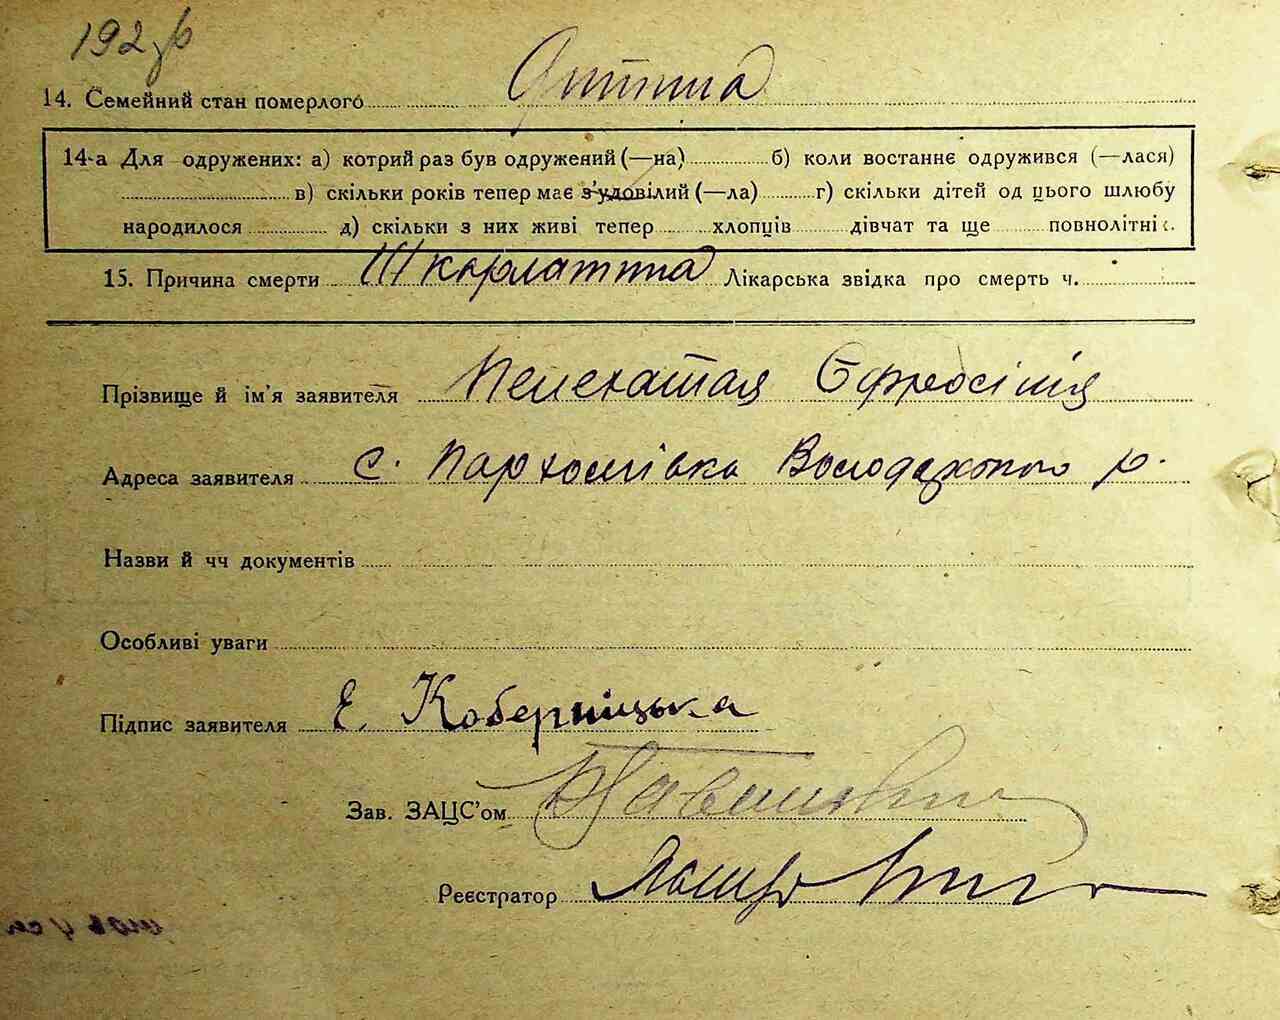 192 зв
14. Семейний стан померлого Дитина
14-а Для одружених: а) котрий раз був одружений (—на) б) коли востаннє одружився (—лася)
в) скільки років тепер має з'удовілий (—ла) г) скільки дітей од цього шлюбу
народилося д) скільки з них живі тепер хлопців дівчат та ще повнолітніх.
15. Причина смерти Шкарлатина Лікарська звідка про смерть ч.
Прізвище й ім'я заявителя Пелехатая Єфросінія
Адреса заявителя с. Пархомівка Володарського р.
Назви й чч документів
Особливі уваги
Підпис заявителя Е. Коберніцька
Зав. ЗАЦС'ом
Реєстратор